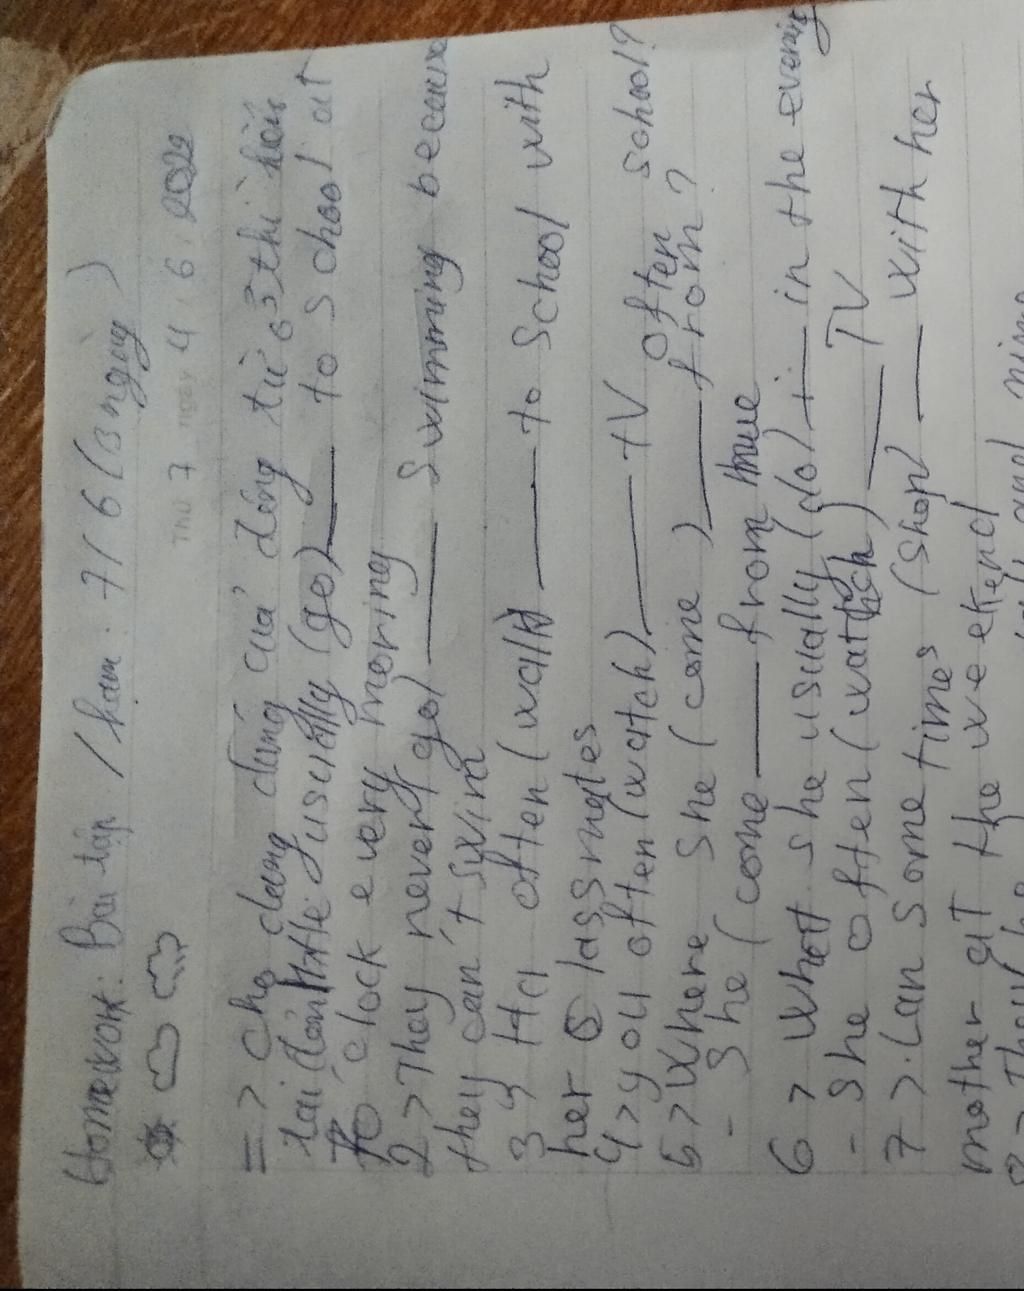 Homework: Bài tập / hạn: 7/6 (3 ngày)
Thứ 7 ngày 4.6.202
=> cho dạng đúng của động từ ở thì hiện
tại đơn
usually (go) ___ to school at
o'clock every moring
2> They never (go) ___ swimming because
they can't swim
3> Ha often (walk) ___ to school with
her classmates
4> you often (watch) ___ TV often school?
5> Where she (come) ___ from?
- She (come ___ from Hue
6> What she usually (do) ___ in the evening
- She often (watch) ___ TV
7> Lan some times (shop) ___ with her
mother at the weekend
and nine